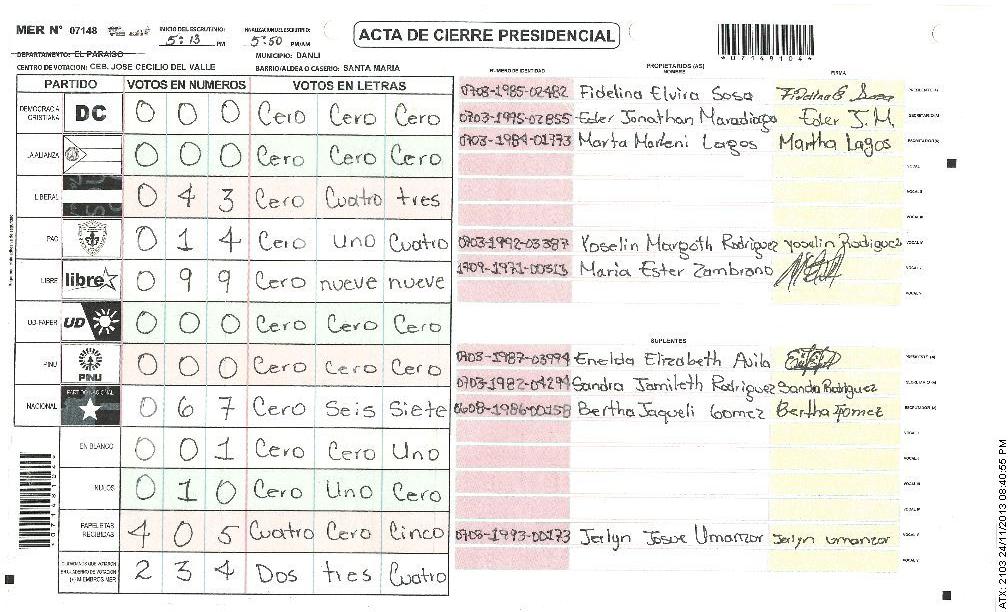 MER N° 07148
INICIO DEL ESCRUTINIO:
5:13 PM
FINALIZACION DEL ESCRUTINIO:
5:50 PM/AM
ACTA DE CIERRE PRESIDENCIAL
*07148104*
DEPARTAMENTO: EL PARAISO
MUNICIPIO: DANLI
CENTRO DE VOTACION: CEB. JOSE CECILIO DEL VALLE
BARRIO/ALDEA O CASERIO: SANTA MARIA
PARTIDO VOTOS EN NUMEROS VOTOS EN LETRAS
DEMOCRACIA CRISTIANA DC 0 0 0 Cero Cero Cero
LA ALIANZA 0 0 0 Cero Cero Cero
LIBERAL 0 4 3 Cero Cuatro tres
PAC 0 1 4 Cero uno Cuatro
LIBRE libre 0 9 9 Cero nueve nueve
UD-FAPER UD 0 0 0 Cero Cero Cero
PINU PINU 0 0 0 Cero Cero Cero
NACIONAL PARTIDO NACIONAL 0 6 7 Cero Seis Siete
EN BLANCO 0 0 1 Cero Cero Uno
NULOS 0 1 0 Cero Uno Cero
PAPELETAS RECIBIDAS 4 0 5 Cuatro Cero Cinco
CIUDADANOS QUE VOTARON EN CUADERNO DE VOTACION (+) MIEMBROS MER 2 3 4 Dos tres Cuatro
PROPIETARIOS (AS)
NUMERO DE IDENTIDAD NOMBRES FIRMA
0708-1985-02482 Fidelina Elvira Sosa Fidelina E Sosa PRESIDENTE (A)
0703-1995-02855 Eder Jonathan Maradiaga Eder J.M. SECRETARIO (A)
0703-1984-01773 Marta Marleni Lagos Martha Lagos ESCRUTADOR (A)
VOCAL I
VOCAL II
VOCAL III
0703-1992-03387 Yoselin Margoth Rodriguez Yoselin Rodiguez VOCAL IV
1709-1971-00313 Maria Ester Zambrano VOCAL V
SUPLENTES
0703-1987-03994 Enelda Elizabeth Avila PRESIDENTE (A)
0703-1982-04294 Sandra Jamileth Rodriguez Sanda Rodriguez SECRETARIO (A)
0608-1986-00158 Bertha Jaqueli Gomez Bertha Gomez ESCRUTADOR (A)
VOCAL I
VOCAL II
VOCAL III
VOCAL IV
0703-1993-00173 Jerlyn Josue Umanzor Jerlyn umanzor VOCAL V
ATX: 2103 24/11/2013 08:40:55 PM